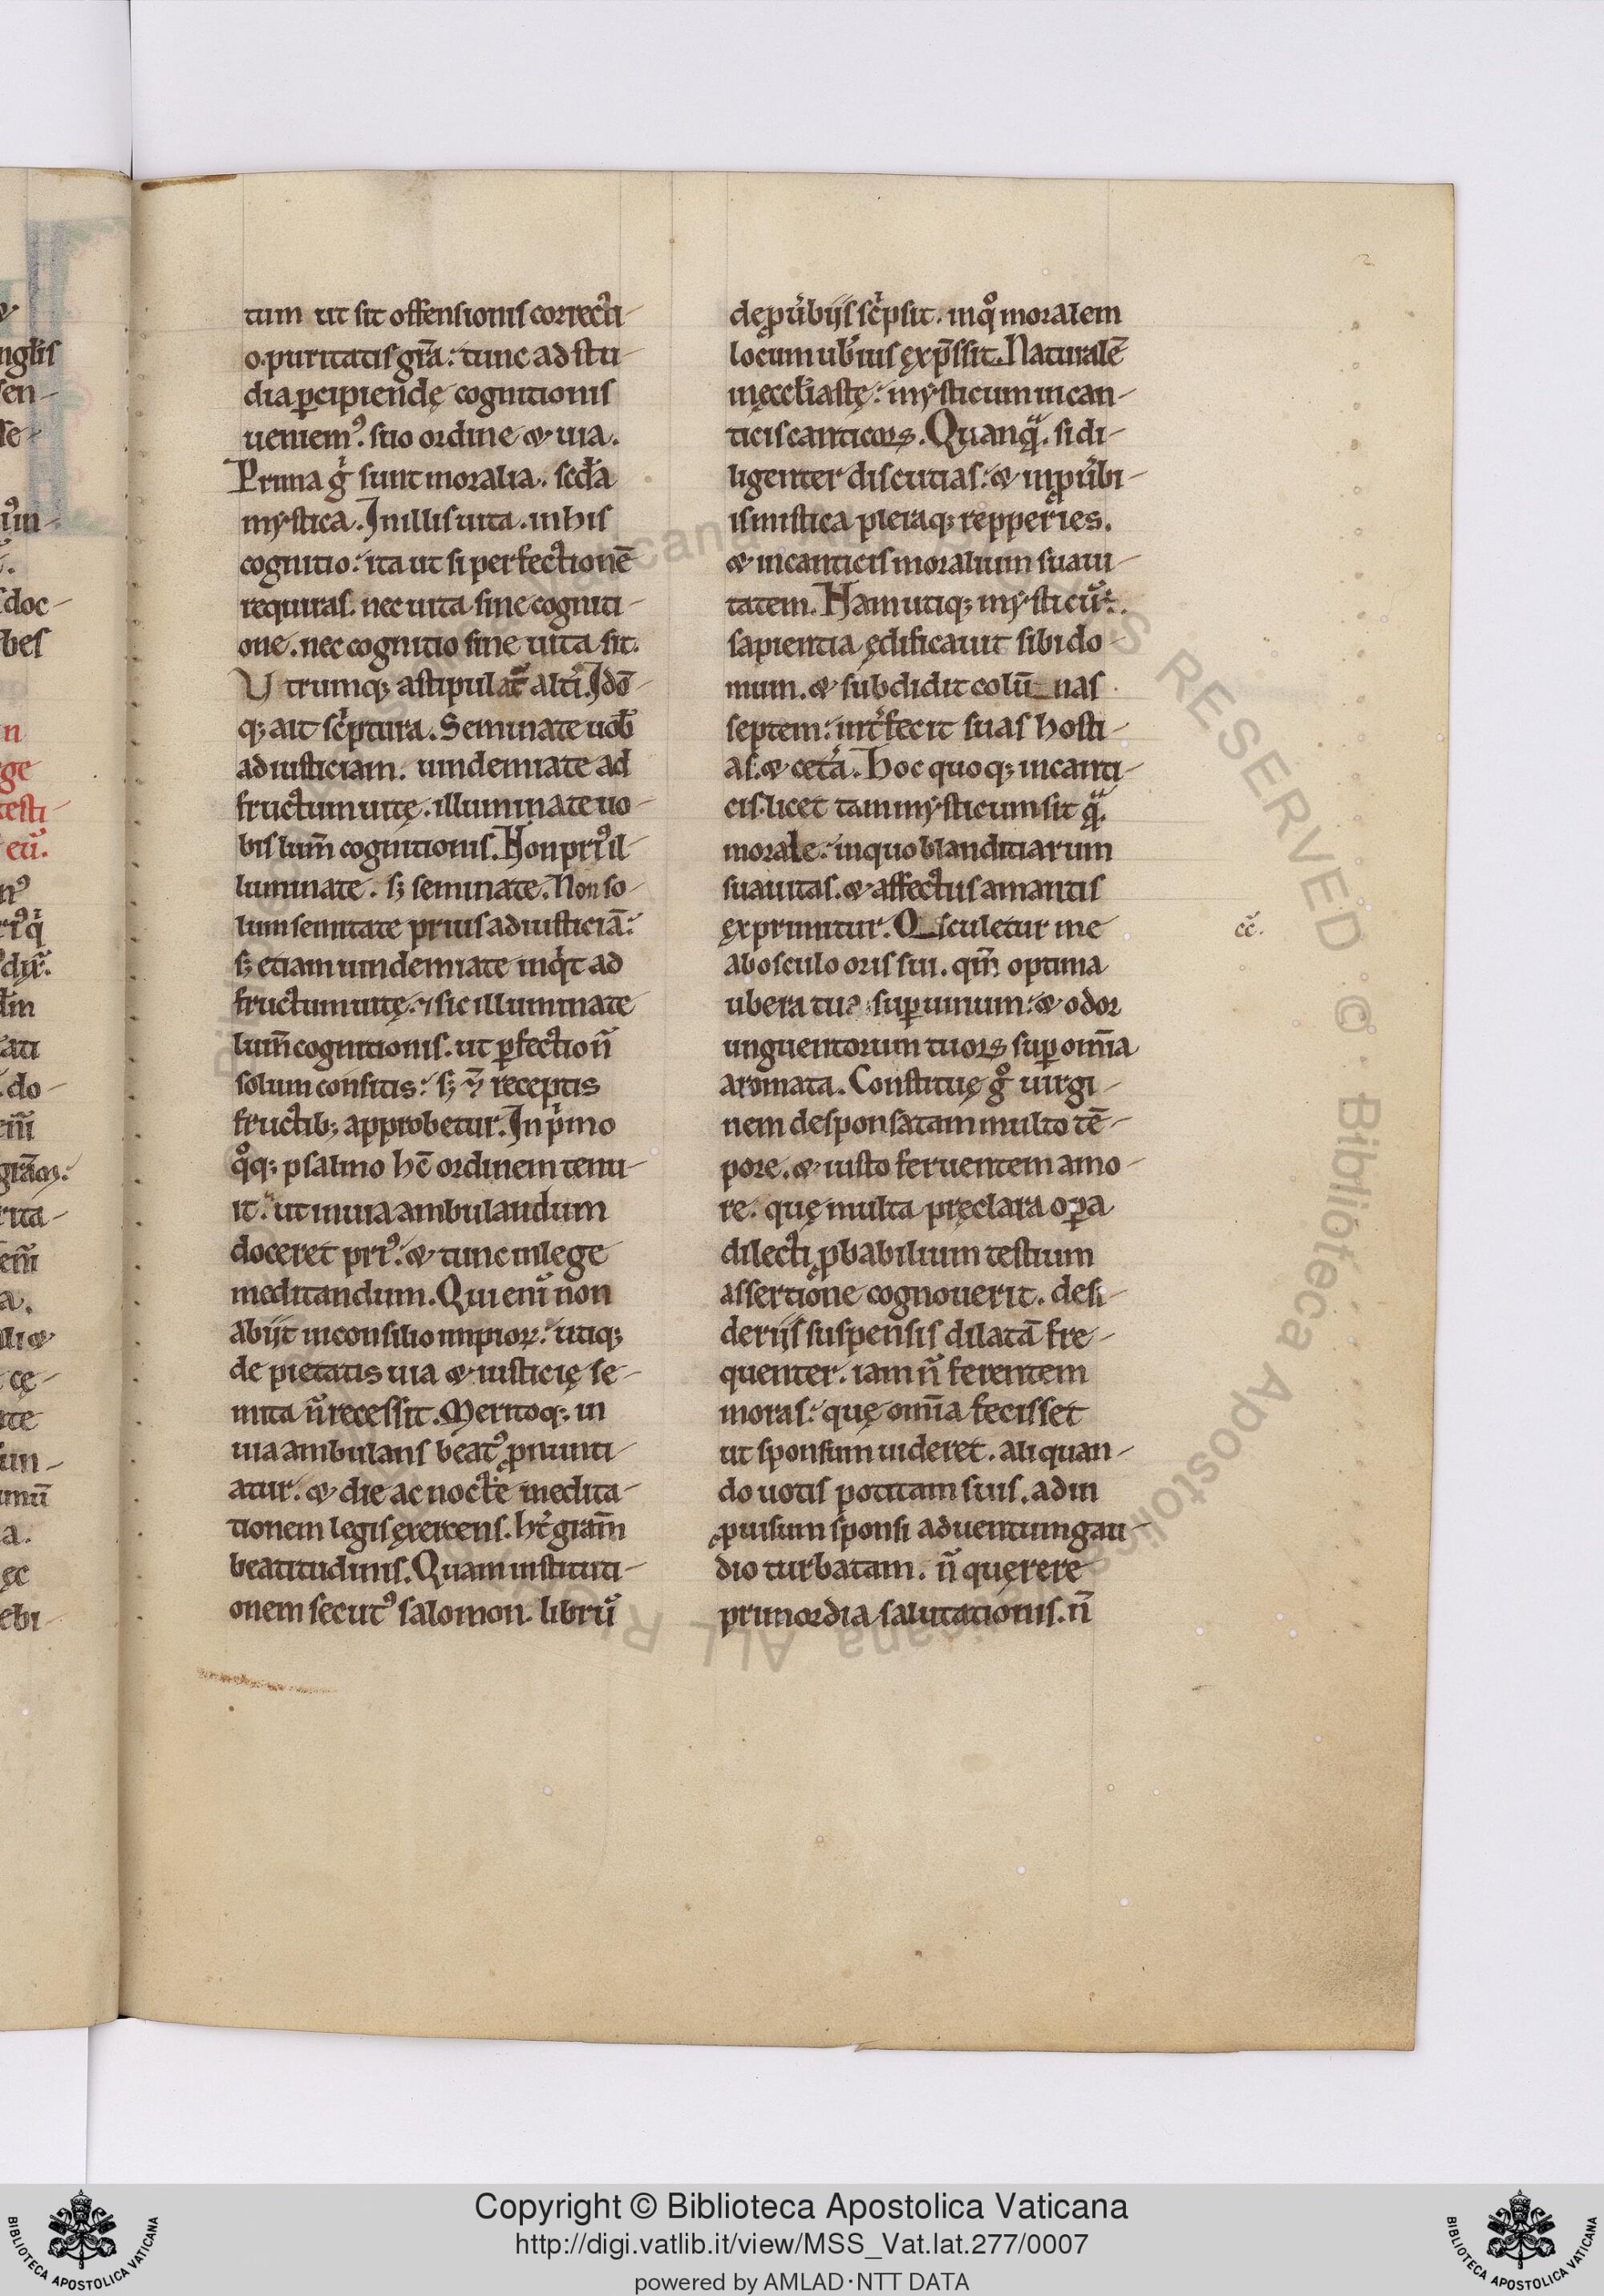 tum ut sit offensionis correcti-
o. puritatis gr̄a: tunc ad stu-
dia ꝑcipiendę cognitionis
ueniemꝰ. suo ordine & uia.
Prima gͥ sunt moralia. scd̄a
mystica. In illis uita. in his
cognitio: ita ut si perfectionē
requiras. nec uita sine cogniti-
one. nec cognitio sine uita sit.
Utrumq; astipulat᷑ altͥ. Idō-
q; ait scͥptura. Seminate uob̄
ad iusticiam. uindemiate ad
fructum uitę. illuminate uo-
bis lum̄ cognitionis. Non priꝰ il-
luminate. s; seminate. Non so-
lum seminate prius ad iusticiā:
s; etiam uindemiate inqͥt ad
fructum uitę. ⁊ sic illuminate
lum̄ cognitionis. ut ꝑfectio n̄
solum consitis: s; ⁊ receptis
fructib; approbetur. In pͥmo
qͦq; psalmo hc̄ ordinem tenu-
it. ut in uia ambulandum
doceret priꝰ: & tunc in lege
meditandum. Qui enī non
abijt in consilio impioꝝ: utiq;
de pietatis uia & iusticię se-
mita n̄ recessit. Meritoq; in
uia ambulans beatꝰ ꝓnunti-
atur. & die ac nocte medita-
tionem legis exercens. ht̄ gr̄am
beatitudinis. Quam instituti-
onem secutꝰ salomon. librū
de ꝓuͥbijs scͥpsit. in qͦ moralem
locum ub̄ius exp̄ssit. Naturalē
in ęccl̄iastę: mysticum in can-
ticis canticoꝝ. Quanqͣ. si di-
ligenter discutias: & in ꝓuͥbi-
is mistica pleraq; repperies.
& in canticis moralium suaui-
tatem. Nam utiq; mysticū:
sapientia ędificauit sibi do-
mum. & subdidit colū nas
septem: int̄fecit suas hosti-
as. & cetͥa. Hoc quoq; in canti-
cis. licet tam mysticum sit qͣ.
morale: in quo blanditiarum
suauitas. & affectus amantis
exprimitur. Osculetur me
ab osculo oris sui. qm̄ optima
cc̄.
ubera tua suꝑ uinum: & odor
unguentorum tuoꝝ suꝑ om̄ia
aromata. Constitue gͦ uirgi-
nem desponsatam multo tē-
pore. & iusto feruentem amo-
re. quę multa pręclara oꝑa
dilecti ꝓbabilium testium
assertione cognouerit. desi-
derijs suspensis dilatā fre-
quenter. iam n̄ ferentem
moras: quę om̄ia fecisset
ut sponsum uideret. aliquan-
do uotis potitam suis. ad in
ꝓuisum sponsi aduentum gau-
dio turbatam. n̄ quęrere
primordia salutationis. n̄
Copyright © Biblioteca Apostolica Vaticana
http://digi.vatlib.it/view/MSS_Vat.lat.277/0007
powered by AMLAD·NTT DATA
BIBLIOTECA APOSTOLICA VATICANA
BIBLIOTECA APOSTOLICA VATICANA